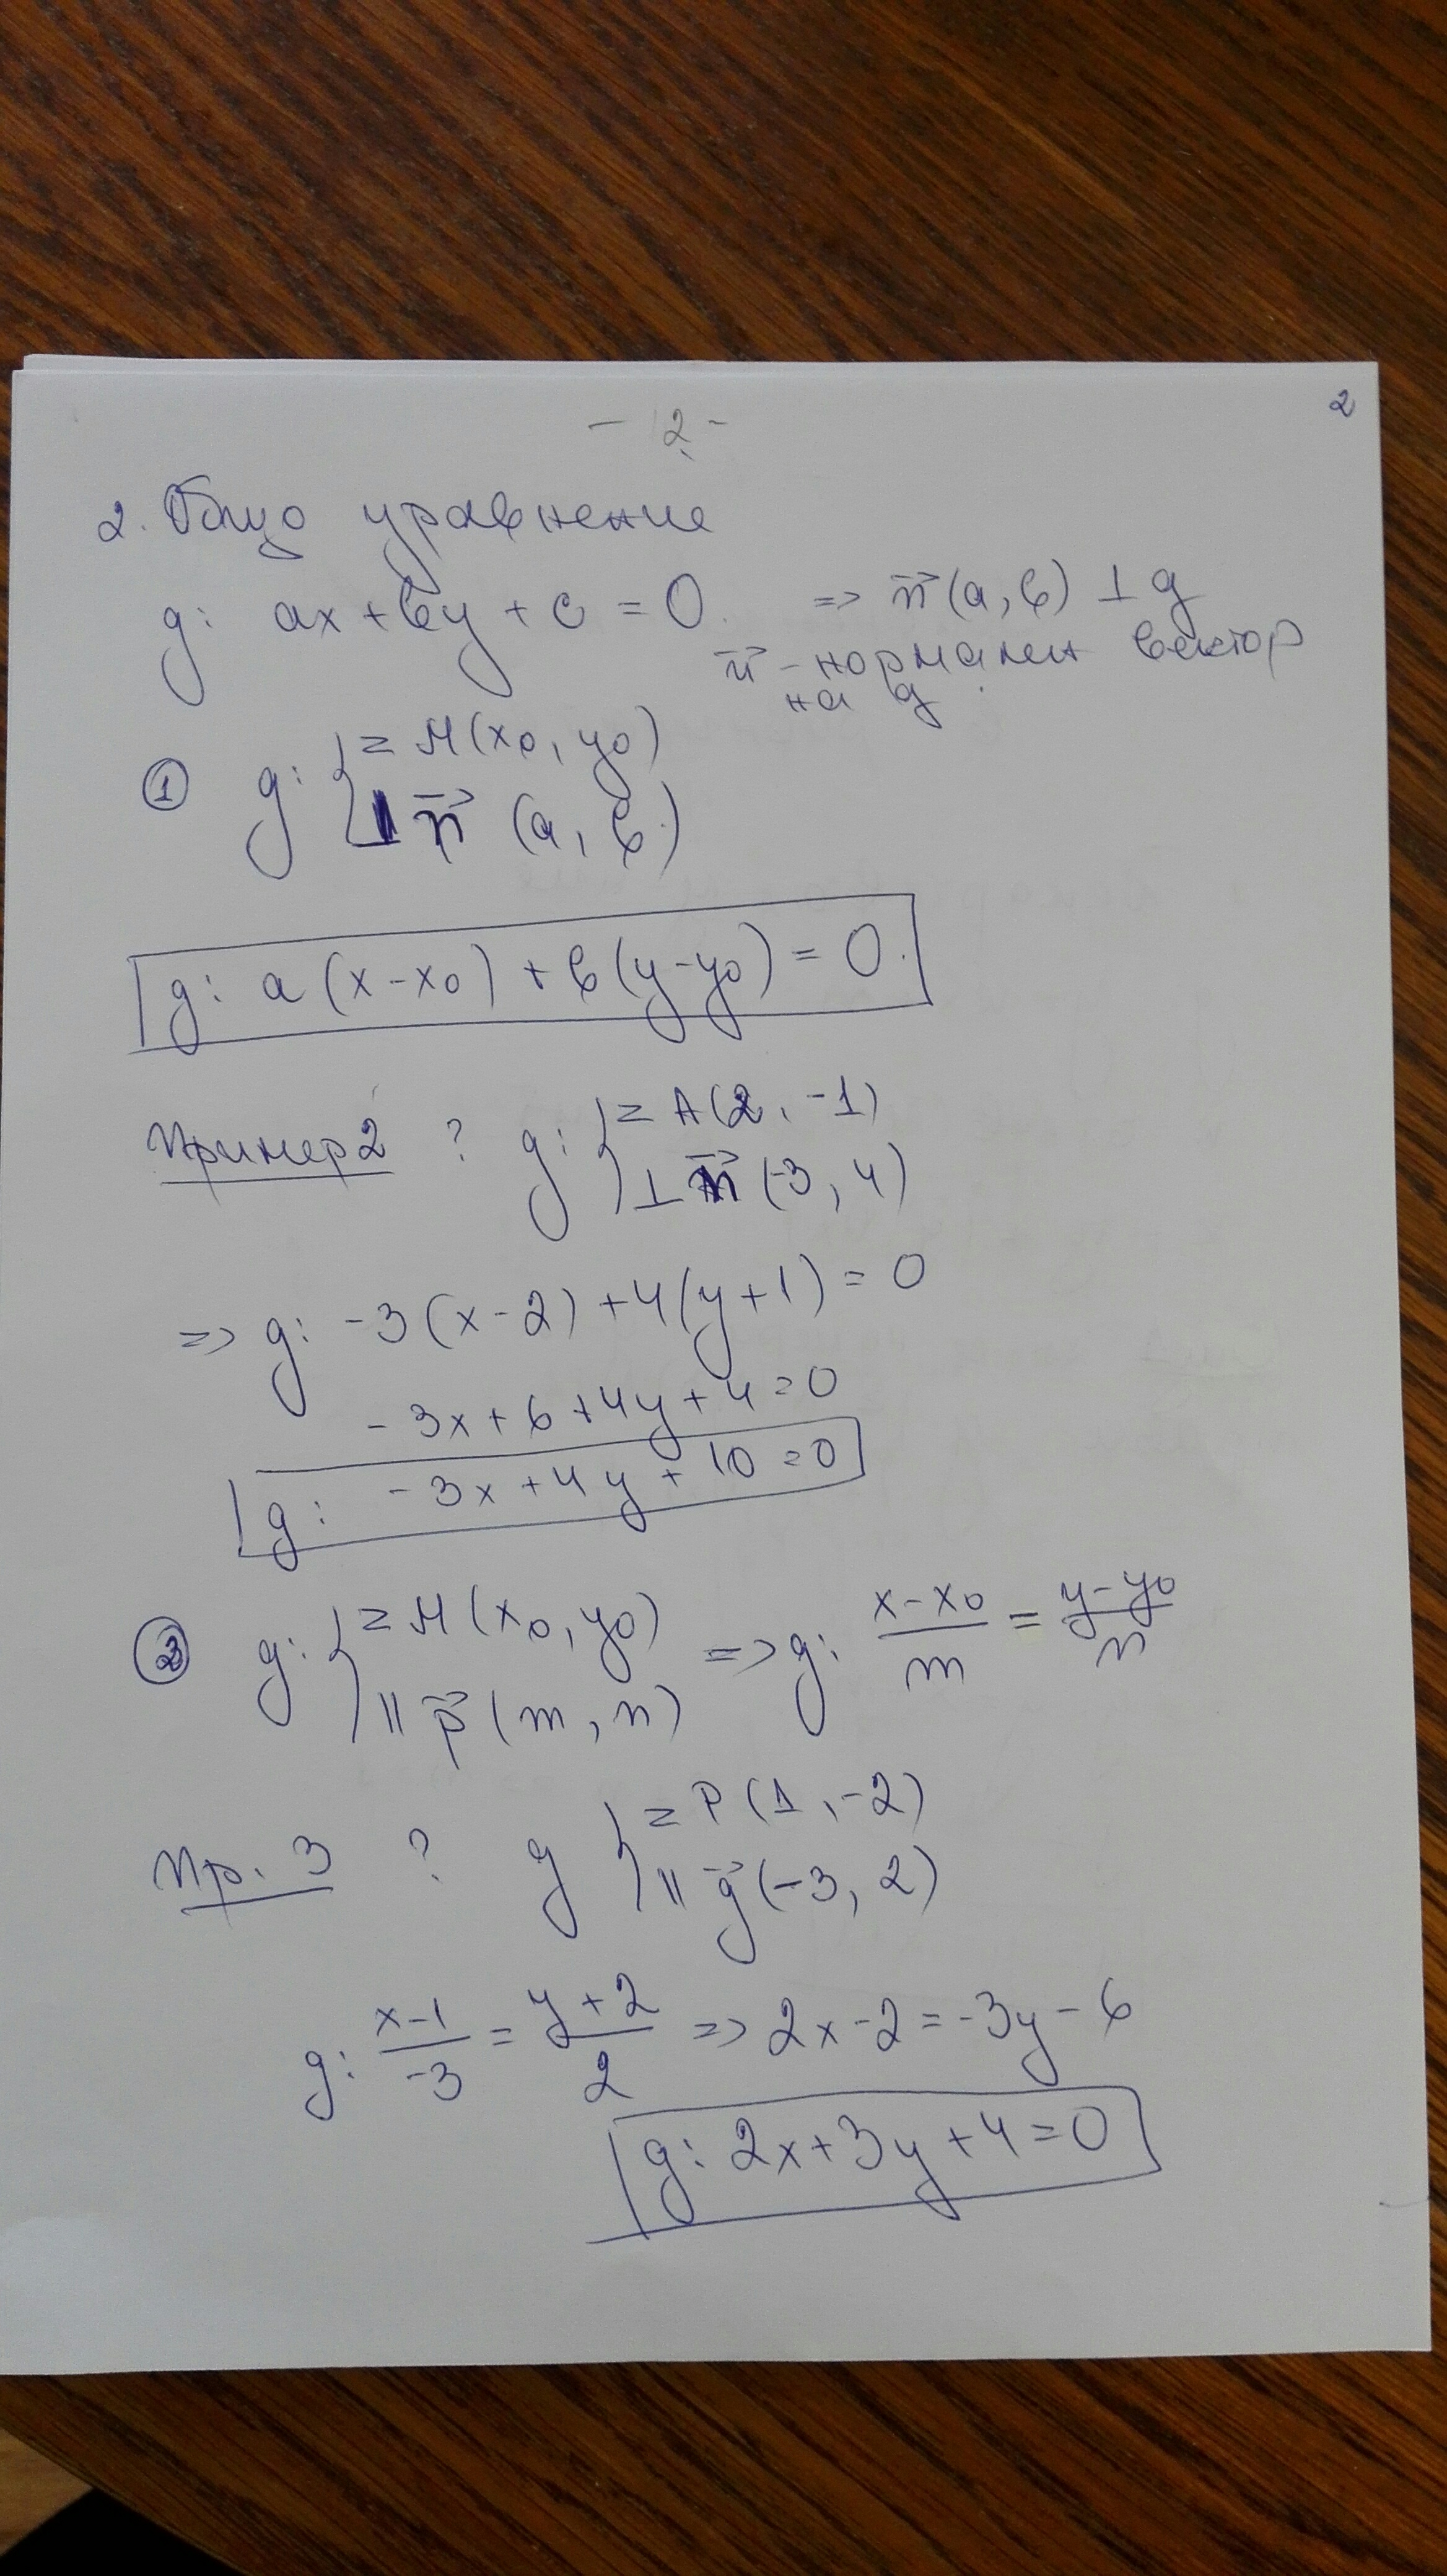 2
- 2 -
2. Общо уравнение
g: ax + by + c = 0. => n⃗(a, b) ⊥ g
n⃗ - нормален вектор
на g
① g: { ≥ M(x₀, y₀)
⊥ n⃗ (a, b)
g: a(x-x₀) + b(y-y₀) = 0.
Пример 2 ? g: { ≥ A(2, -1)
⊥ n⃗ (-3, 4)
=> g: -3(x-2) + 4(y+1) = 0
-3x + 6 + 4y + 4 = 0
g: -3x + 4y + 10 = 0
② g: { ≥ M(x₀, y₀) => g: (x-x₀)/m = (y-y₀)/n
|| p⃗ (m, n)
Пр. 3 ? g { ≥ P(1, -2)
|| g⃗ (-3, 2)
g: (x-1)/-3 = (y+2)/2 => 2x-2 = -3y-6
g: 2x+3y+4=0